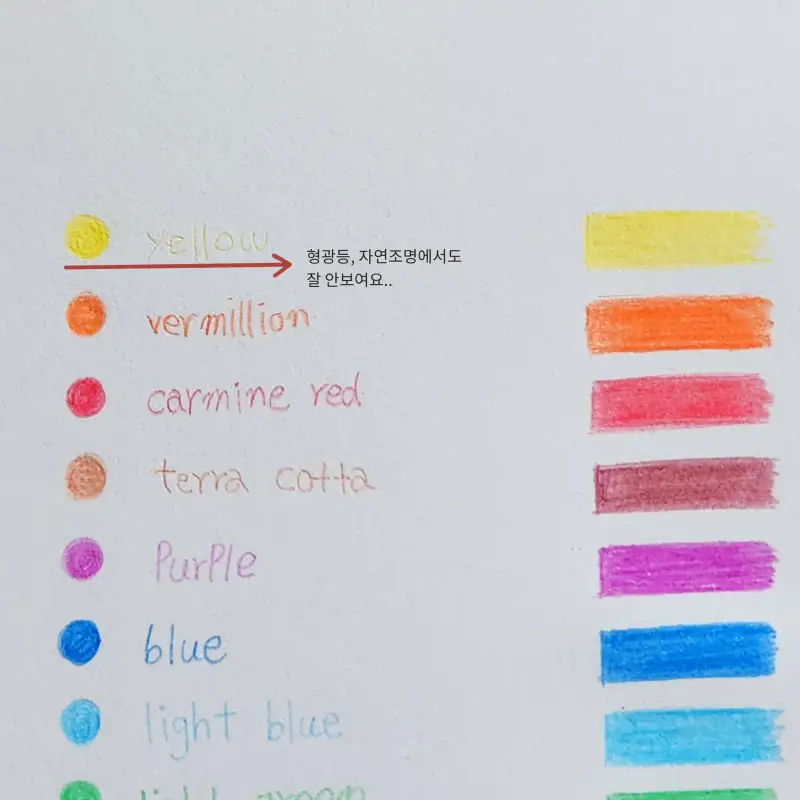 yellow
형광등, 자연조명에서도
잘 안보여요..
vermillion
carmine red
terra cotta
Purple
blue
light blue
light green